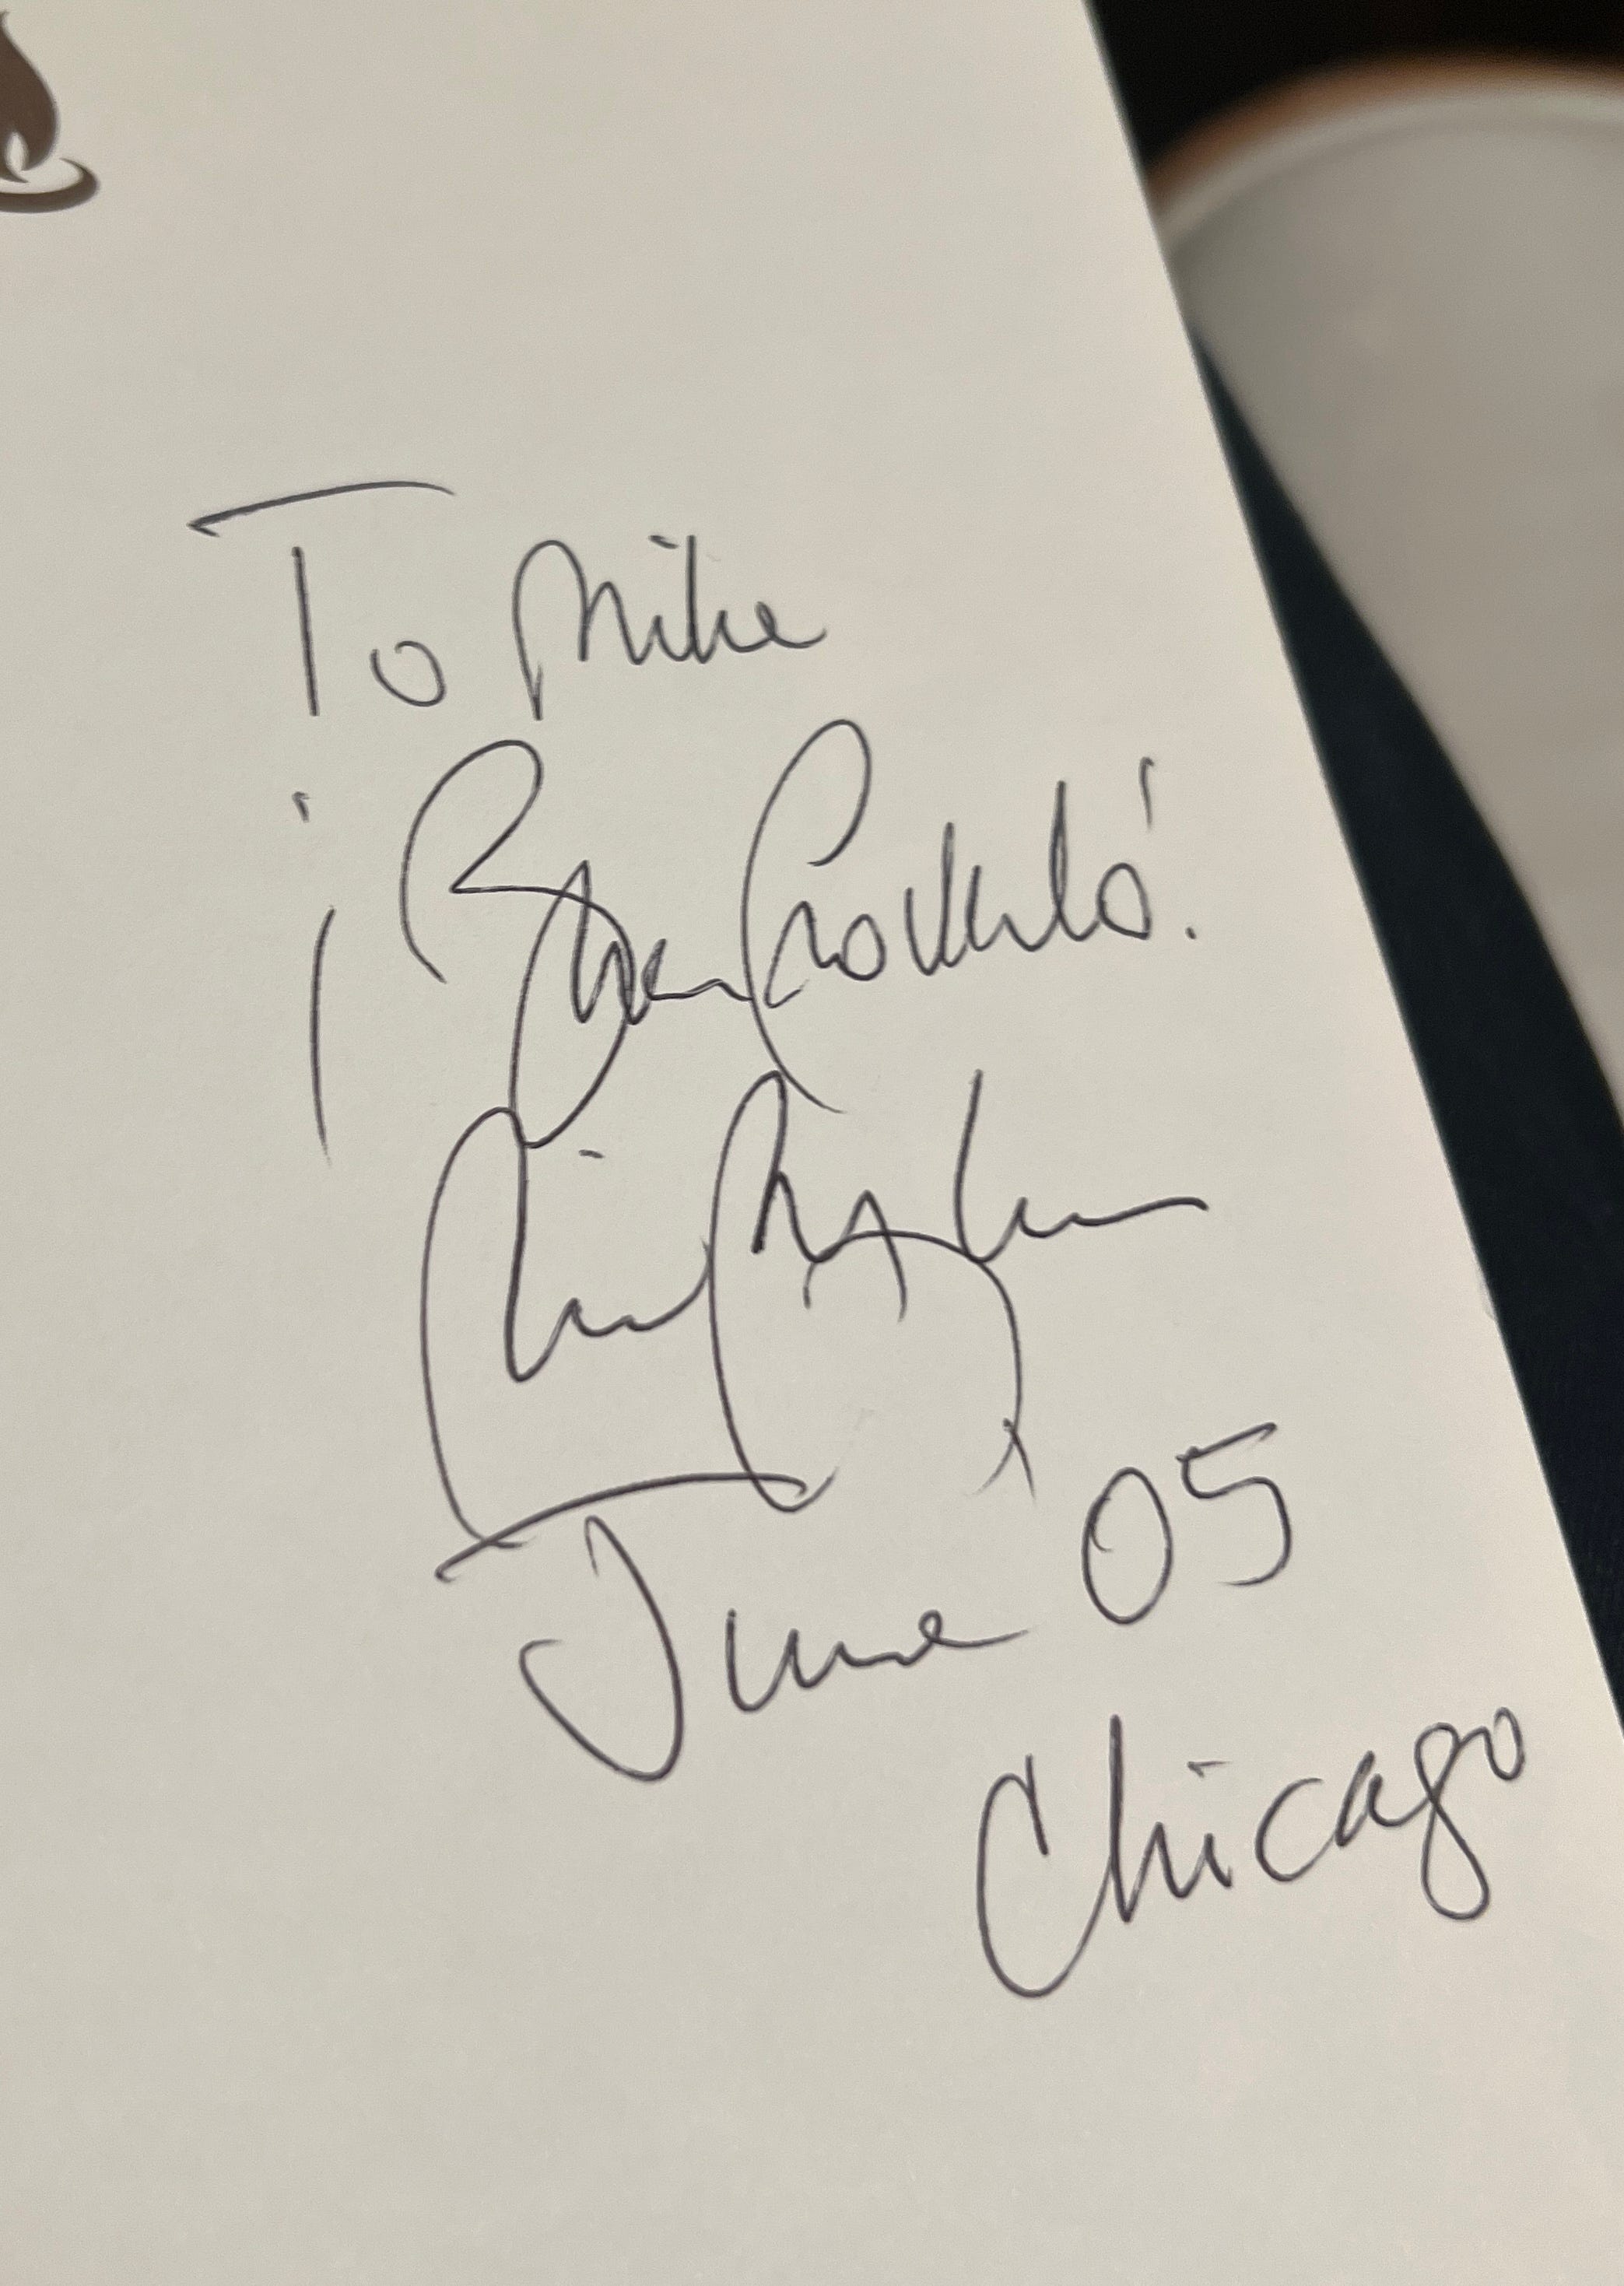 To Mike
¡Buen Provecho!
June 05
Chicago